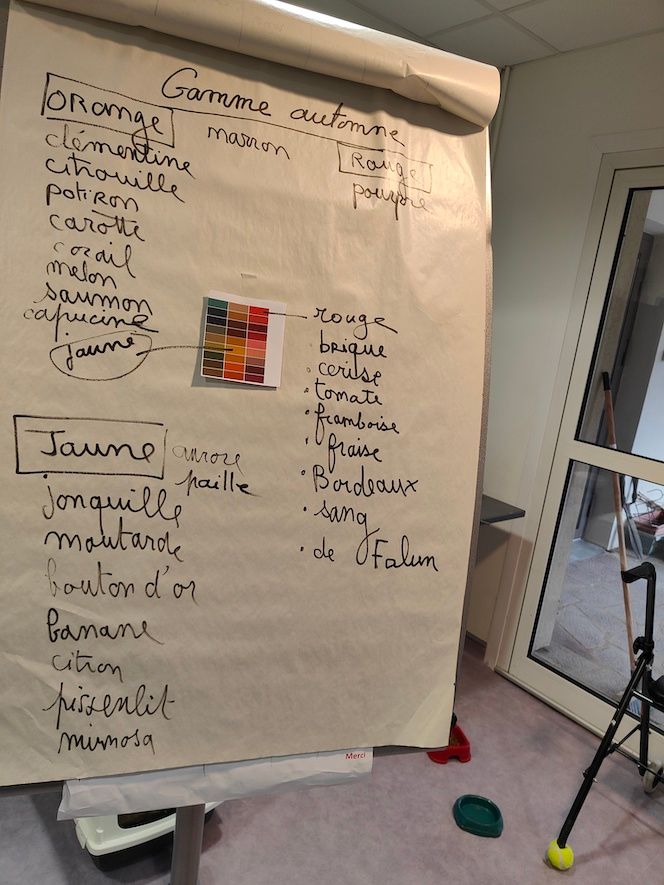 Gamme automne
ORANGE
marron
Rouge
pourpre
clémentine
citrouille
potiron
carotte
corail
melon
saumon
capucine
jaune
rouge
brique
cerise
tomate
framboise
fraise
Bordeaux
sang
de Falun
Jaune
aurore
paille
jonquille
moutarde
bouton d'or
banane
citron
pissenlit
mimosa
Merci